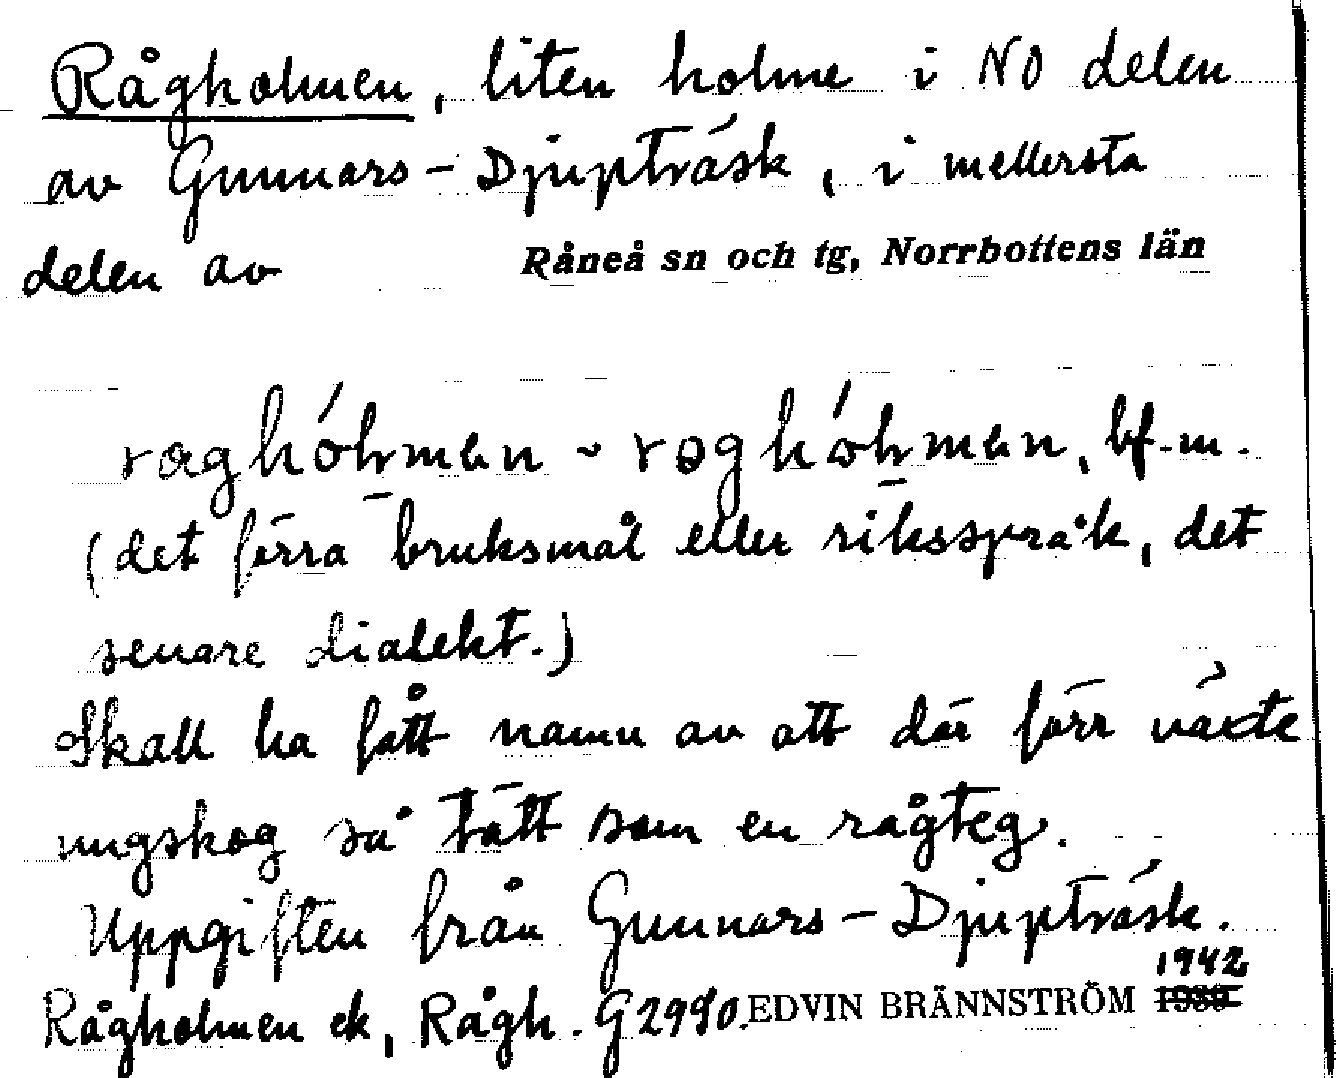 Rågholmen, liten holme i NO delen
av Gunnars-Djupträsk, i mellersta
delen av Råneå sn och tg, Norrbottens län
raghólmen ~ røghólmen, bf.m.
(det förra bruksmål eller riksspråk, det
senare dialekt.)
Skall ha fått namn av att där förr växte
ungskog så tätt som en rågteg.
Uppgiften från Gunnars-Djupträsk.
1942
Rågholmen ek, Rågh. G2990. EDVIN BRÄNNSTRÖM